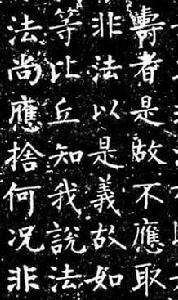 壽者是故不應取
非法以是義故如
等比丘知我說法
法尚應捨何况非